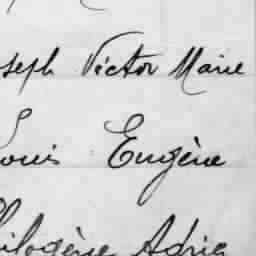 seph Victor Marie
Louis Eugène
hilogène Adrie